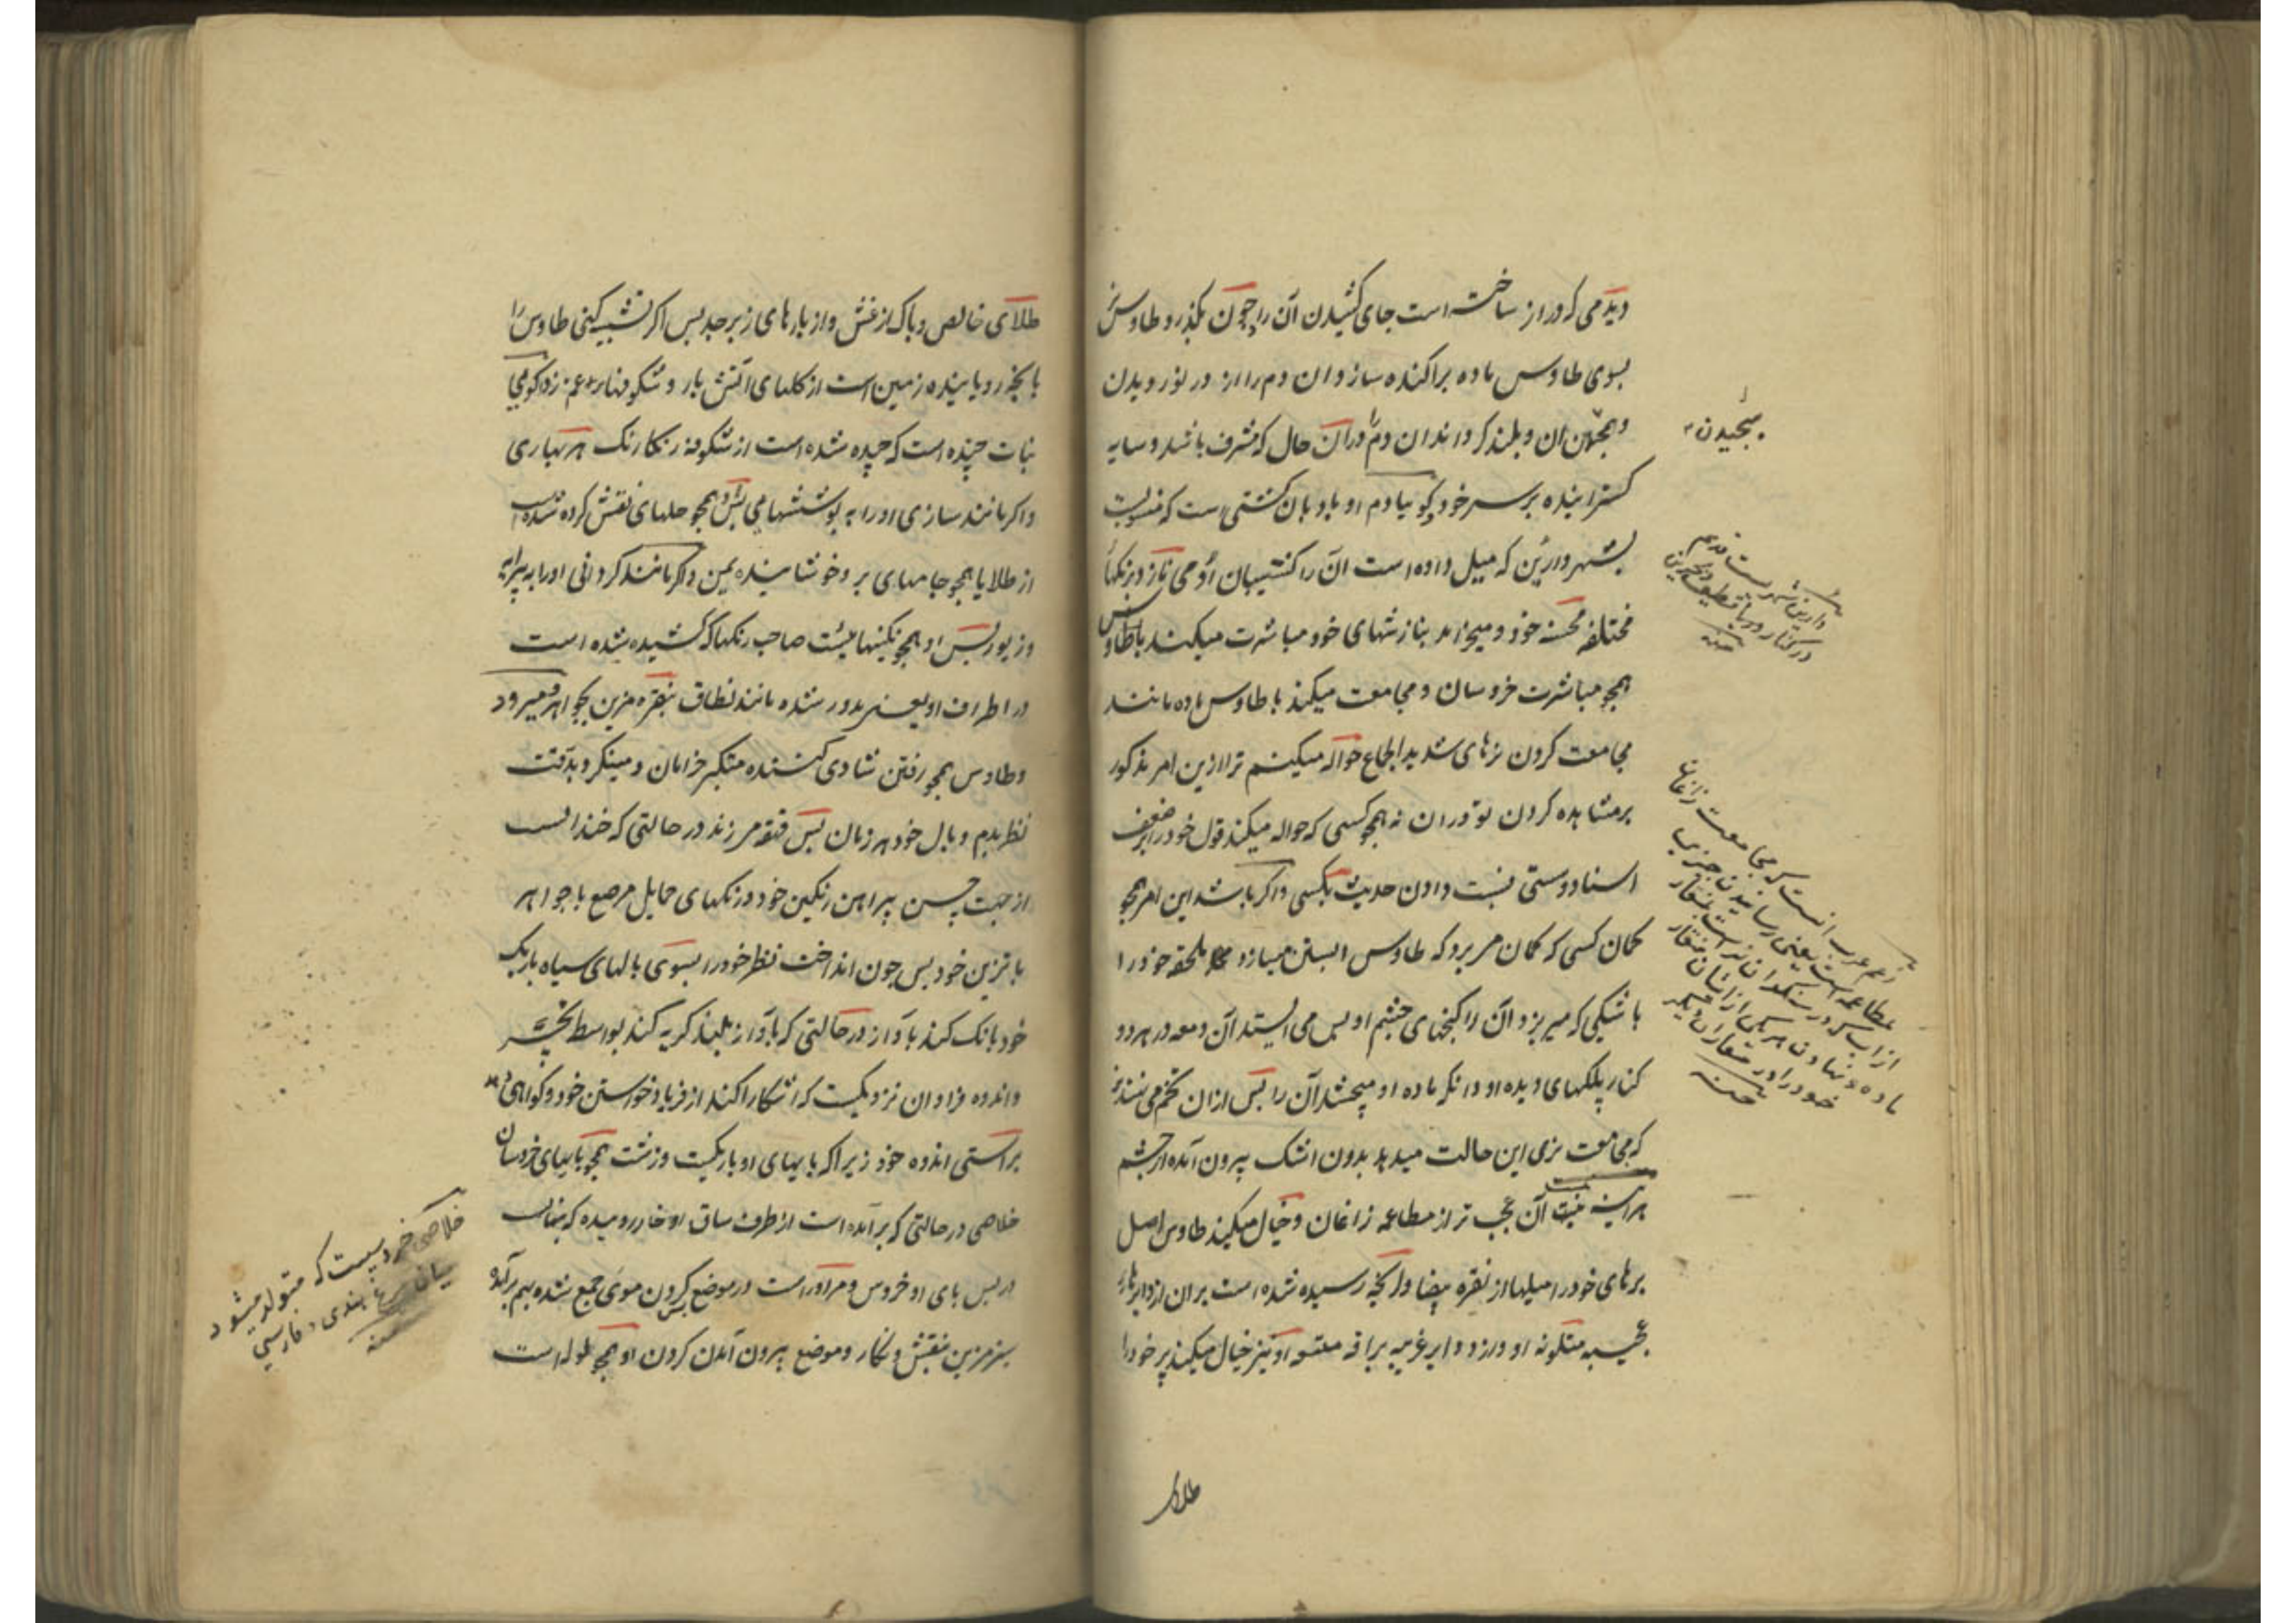 ودمی که دراز ساخته است جای کشیدن آن را چون بگذرد طاوس نر
بسوی طاوس ماده پراکنده سازد ان دم را از در نوردیدن
و پیچیدن ان و بلند کرداند ان دم را دران حال که مشرف باشد و سایه
کسترانیده بر سر خود کوییا دم او بادبان کشتی است که منسوبست
بشهر دارین که میل داده است آن را کشتیبان او می نازد برنکهای
مختلفه محسنه خود و میخرامد بنازشهای خود مباشرت میکند باطاوس
همچو مباشرت خروسان و مجامعت میکند با طاوس ماده مانند
مجامعت کردن نرهای شدید الجماع حواله میکنم ترا ازین امر مذکور
بر مشاهده کردن تو دران نه همچو کسی که حواله میکند قول خود را بر ضعف
اسناد و سستی نسبت دادن حدیث بکسی و اکر باشد این امر همچو
کمان کسی که کمان می برد که طاوس ابستن میسازد ملحقه خود را
باشکی که میریزد آن را کنجهای چشم او پس می ایستد آن دمعه در هر دو
کنار پلکهای دیده او و انکه ماده او میچشد آن را پس ازان تخم می نهد نه
که مجامعت نری این حالت میدهد بدون اشک بیرون آمده از چشم
هر اینه نیست آن عجب تر از مطاعمه زاغان و خیال میکند طاوس اصل
پرهای خود را میلها از نقره بیضا و انچه رسیده شده است بران از دایرهای
عجیبه متکونه او و از دوایر غریبه براقه او نیز خیال میکند پر خود را
طلای
بیچیدن
دارین شهریست قدیم
در کنار دریا قطیف و بحرین
منه
زعم عرب انست که مجامعت زاغها
مطاعمه است یعنی رسانیدن جزیی
از اب که در سنکدان نر است بمنقار
ماده و نهادن هر یکی از ایشان منقار
خود را در منقار ان دیکر
منه
طلای خالص و پاک از غش و از پارهای زبرجد پس اکر تشبیه کنی طاوس را
بانچه رویانیده زمین است از کلهای آتش بار و شکوفها کویی
نبات چیده است که چیده شده است از شکوفه رنکارنک هر بهاری
و اکر مانند سازی او را به پوششها می پس او همچو حلهای نقش کرده شده است
از طلا یا همچو جامهای بر دخوشاینده یمن و اکر مانند کردانی او را به پیرایه
و زیور پس او همچو نکینهائیست صاحب رنکها که کشیده شده است
در اطراف او یعنی مدور شده مانند نطاق بنقره مزین بجواهر میرود
و طاوس همچو رفتن شادی کننده متکبر خرامان و مینکرد بدقت
نظر بدم و بال خود هر زمان پس قهقهه می زند در حالتی که خندانست
از جهت حسن پیراهن رنکین خود و رنکهای حمایل مرصع با جواهر
با تزیین خود پس چون انداخت نظر خود را بسوی پایهای سیاه باریک
خود بانک کند بآواز در حالتی که بآواز بلند کریه کند بواسطه تحیر
و اندوه فراوان نزدیکست که اشکارا کند از فریاد خواستن خود و کواهی دهد
براستی اندوه خود زیرا که پایهای او باریکست و زشت همچو پایهای خروسان
خلاصی در حالتی که برآمده است از طرف ساق او خار رومیده که پنهانست
در پس پای او خروس و مر او راست در موضع کردن موی جمع شده بهم برآمده
سبز مزین بنقش و نکار و موضع بیرون آمدن کردن او همچو لوله است
خلاصی خروسیست که متولد میشود
میان مرغ هندی و فارسی
منه